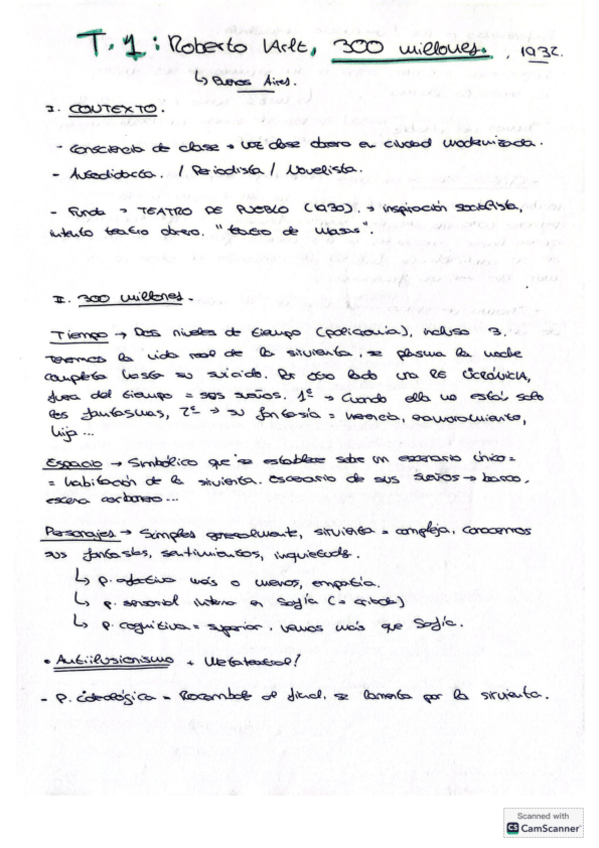 T.1: Roberto Arlt, 300 millones. , 1932.
↳ Buenos Aires.
I. CONTEXTO.
- Consciencia de clase → voz clase obrera en ciudad modernizada.
- Autodidacta. / Periodista / Novelista.
- Funda → TEATRO DE PUEBLO (1930). → inspiración socialista,
intento teatro obrero. "teatro de Masas".
II. 300 millones.
Tiempo → Dos niveles de tiempo (policronía), incluso 3.
tenemos la vida real de la sirvienta, se plasma la noche
completa hasta su suicidio. Por otro lado una RE UCRÓNICIA,
fuera del tiempo = sus sueños. 1º → Cuando ella no está solo
los fantasmas, 2º → su fantasía = herencia, enamoramiento,
hija ...
Espacio → Simbólico que se establece sobre un escenario único =
= habitación de la sirvienta. Escenario de sus sueños → barco,
escena carbonero ...
Personajes → Simples generalmente, sirvienta = compleja, conocemos
sus fantasías, sentimientos, inquietudes.
↳ p. afectiva más o menos, empatía.
↳ p. sensorial interna en Sofía (= )
↳ p. cognitiva = superior. vemos más que Sofía.
• Antiilusionismo + Metateatral!
- p. ideológica - Rocambole al final, se lamenta por la sirvienta.
Scanned with
CS CamScanner